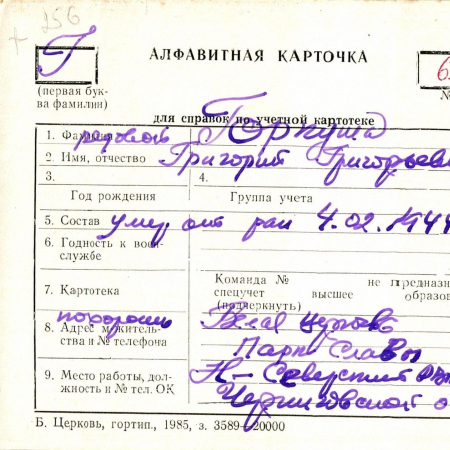 256
Г
АЛФАВИТНАЯ КАРТОЧКА
6
(первая бук-
ва фамилии)
№
для справок по учетной картотеке
1. Фамилия рядовой Горкуша
2. Имя, отчество Григорий Григорьеви
3.
4.
Год рождения
Группа учета
5. Состав умер от ран 4.02.1944
6. Годность к воен-
службе
7. Картотека
Команда № не предназн
спецучет высшее образов
(подчеркнуть)
похоронен
8. Адрес м житель-
ства и № телефона
Парк Славы
9. Место работы, дол-
жность и № тел. ОК
Н-Северский
Черниговской о
Б. Церковь, гортип., 1985, з. 3589—20000